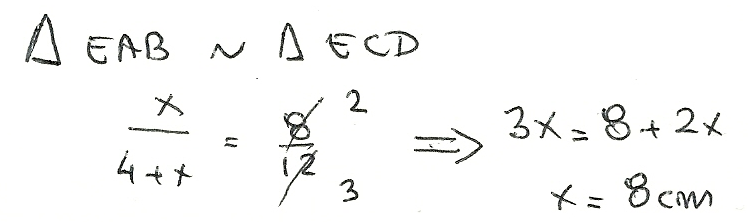 Δ EAB ~ Δ ECD
x/(4+x) = 8/12 2/3 ⇒ 3x = 8 + 2x
x = 8cm